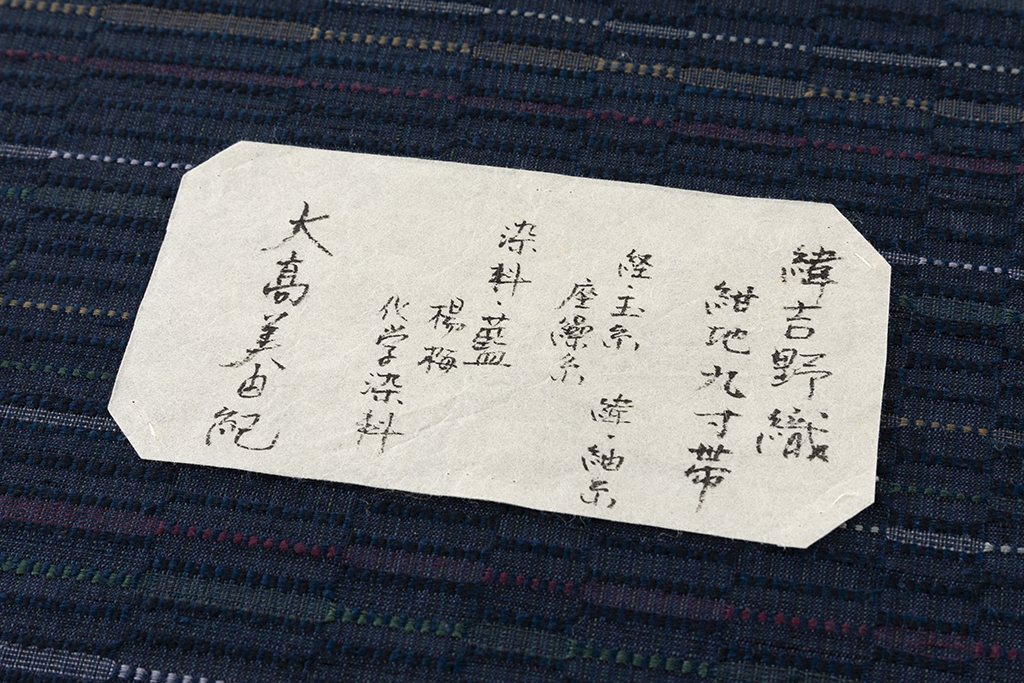 緯吉野織
紺地九寸帯
経・玉糸
座繰糸
緯・紬糸
染料・藍
楊梅
化学染料
大髙美由紀